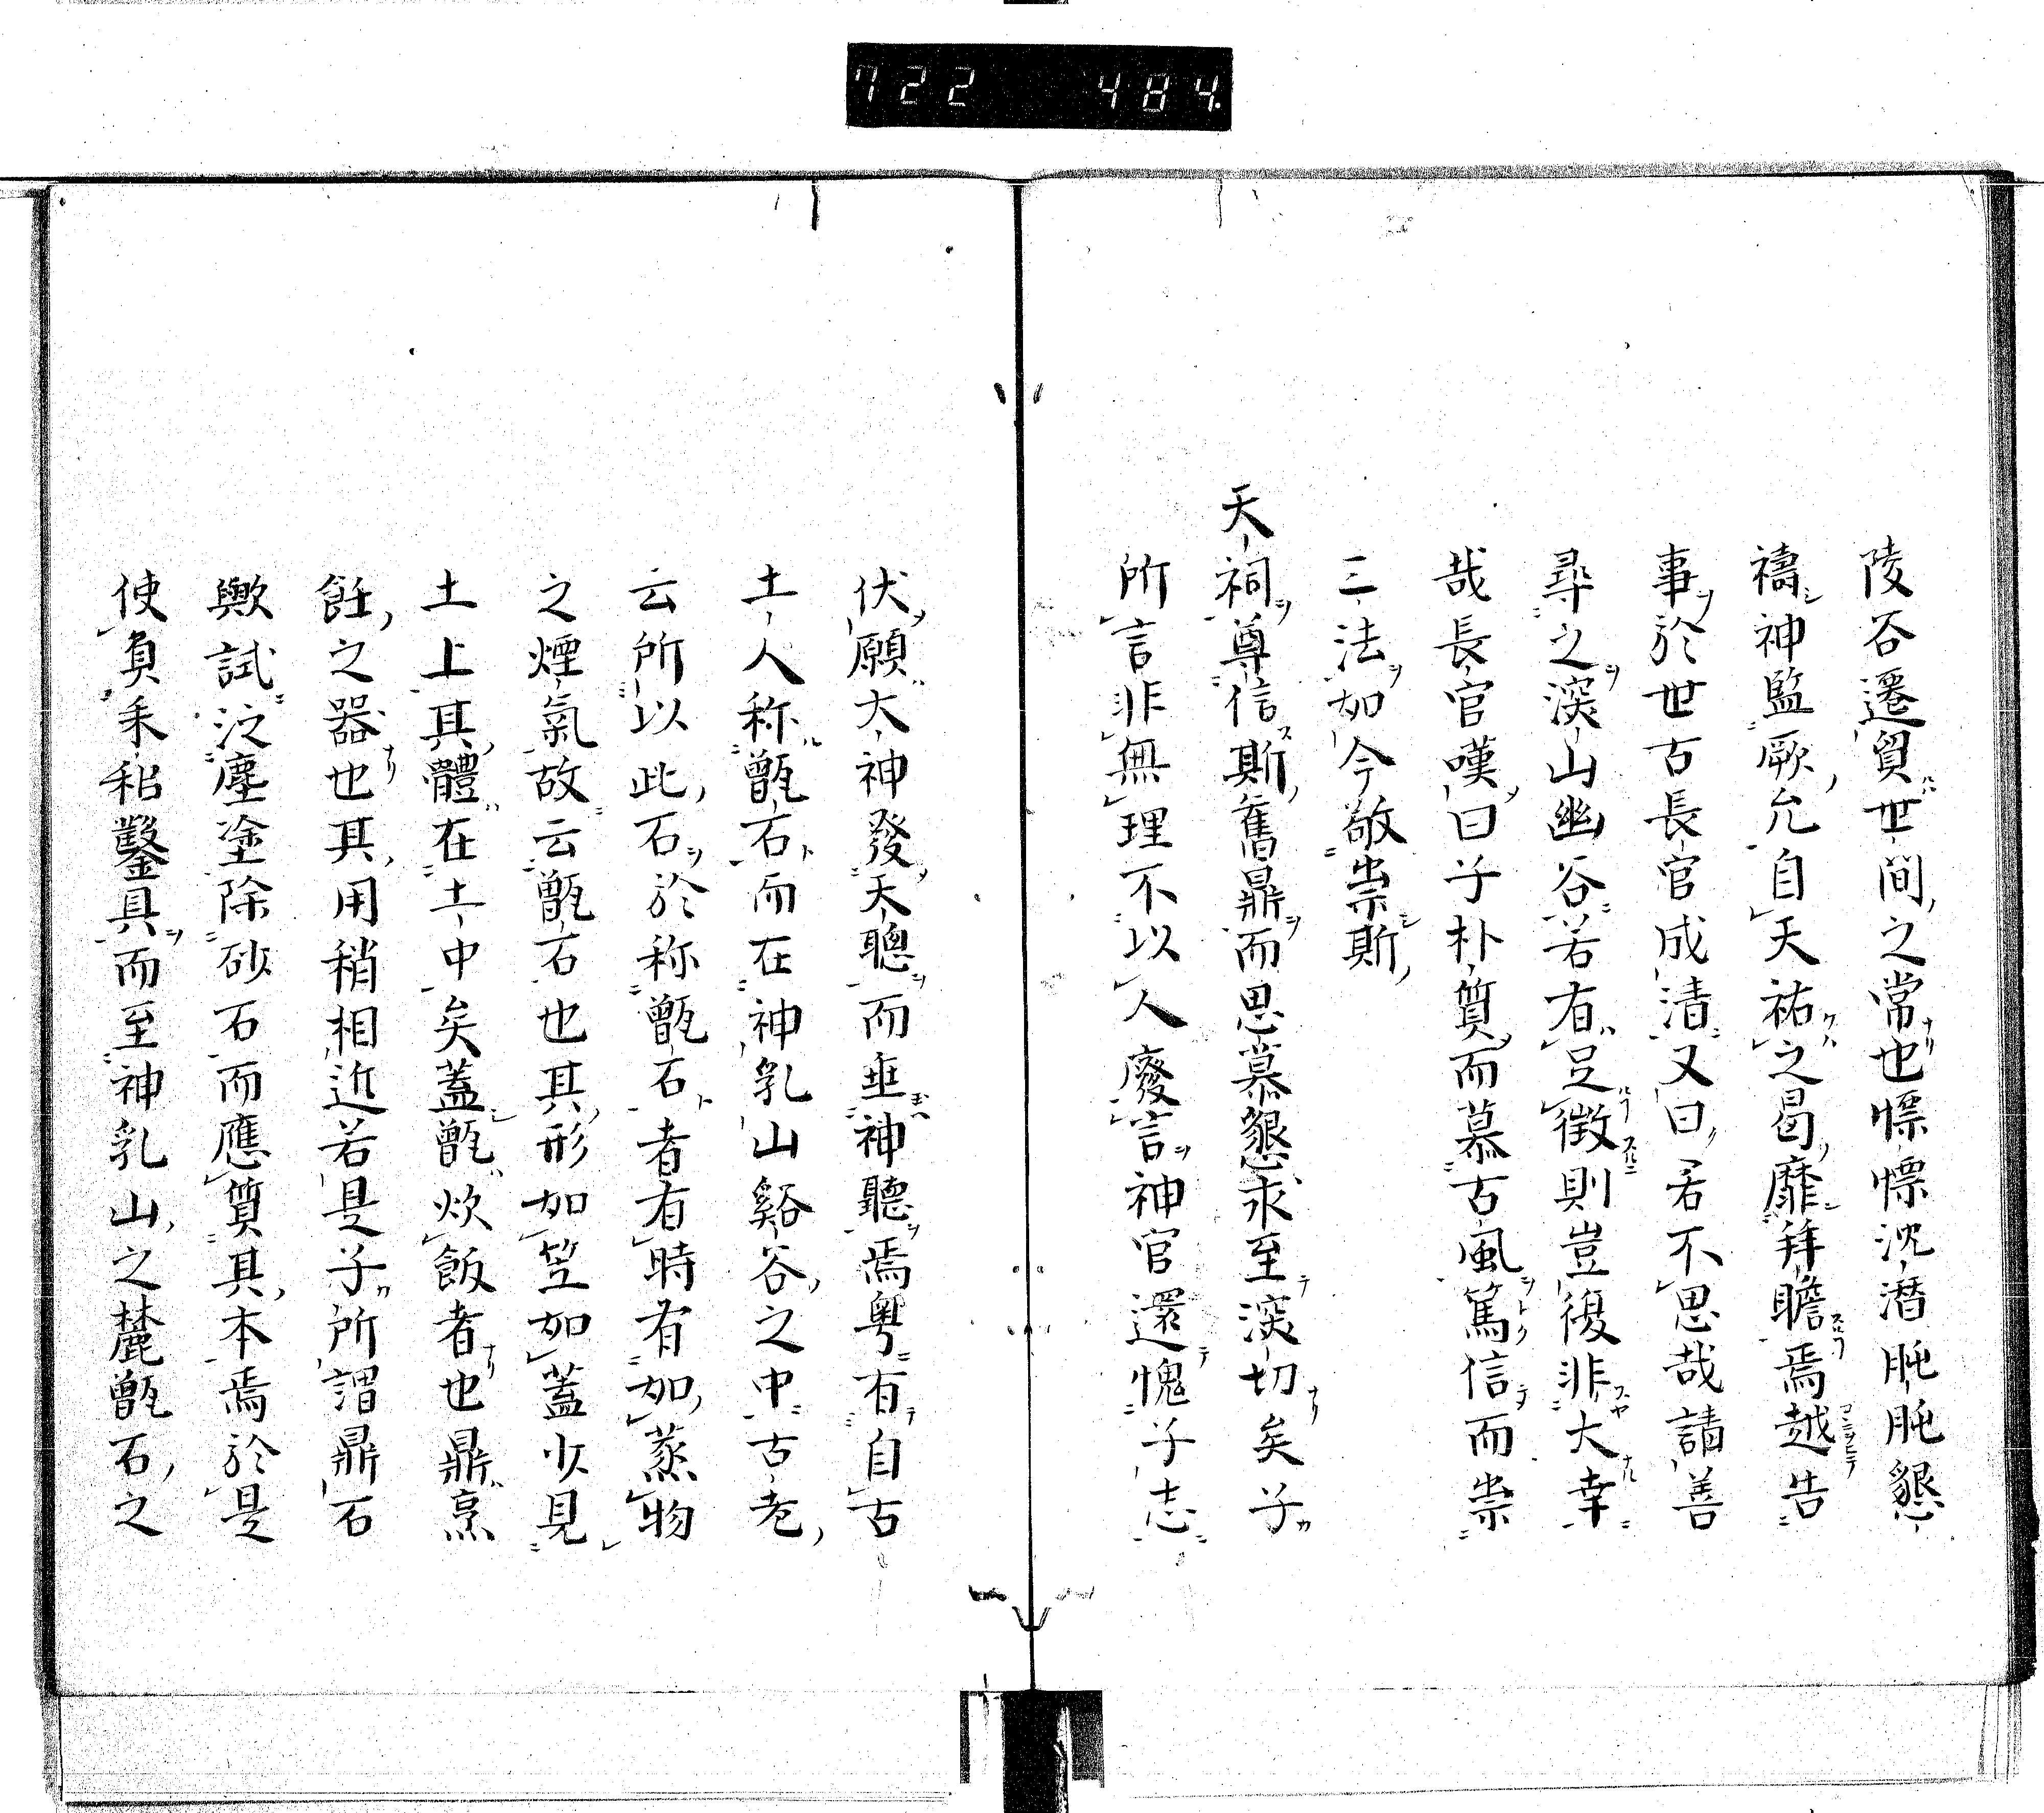 722 484.
陵谷遷貿世間之常也慓慓沈潛肫肫懇
禱神監厥允自天祐之曷靡拜瞻焉越告
事於世古長官成清又曰若不思哉請善
尋之深山幽谷若有足徴則豈復非大幸
哉長官嘆曰子朴質而慕古風篤信而崇
三法如今敬崇斯
天祠尊信斯舊鼎而思慕懇求至深切矣子
所言非無理不以人廢言神官還愧子志
伏願大神發天聰而垂神聽焉粤有自古
土人称甑石而在神乳山谿谷之中古老
云所以此石於称甑石者有時有如蒸物
之煙氣故云甑石也其形如笠如蓋少見
土上其體在土中矣蓋甑炊飯者也鼎烹
飪之器也其用稍相近若是子所謂鼎石
歟試泛塵塗除砂石而應質其本焉於是
使負耒耜鑿具而至神乳山之麓甑石之